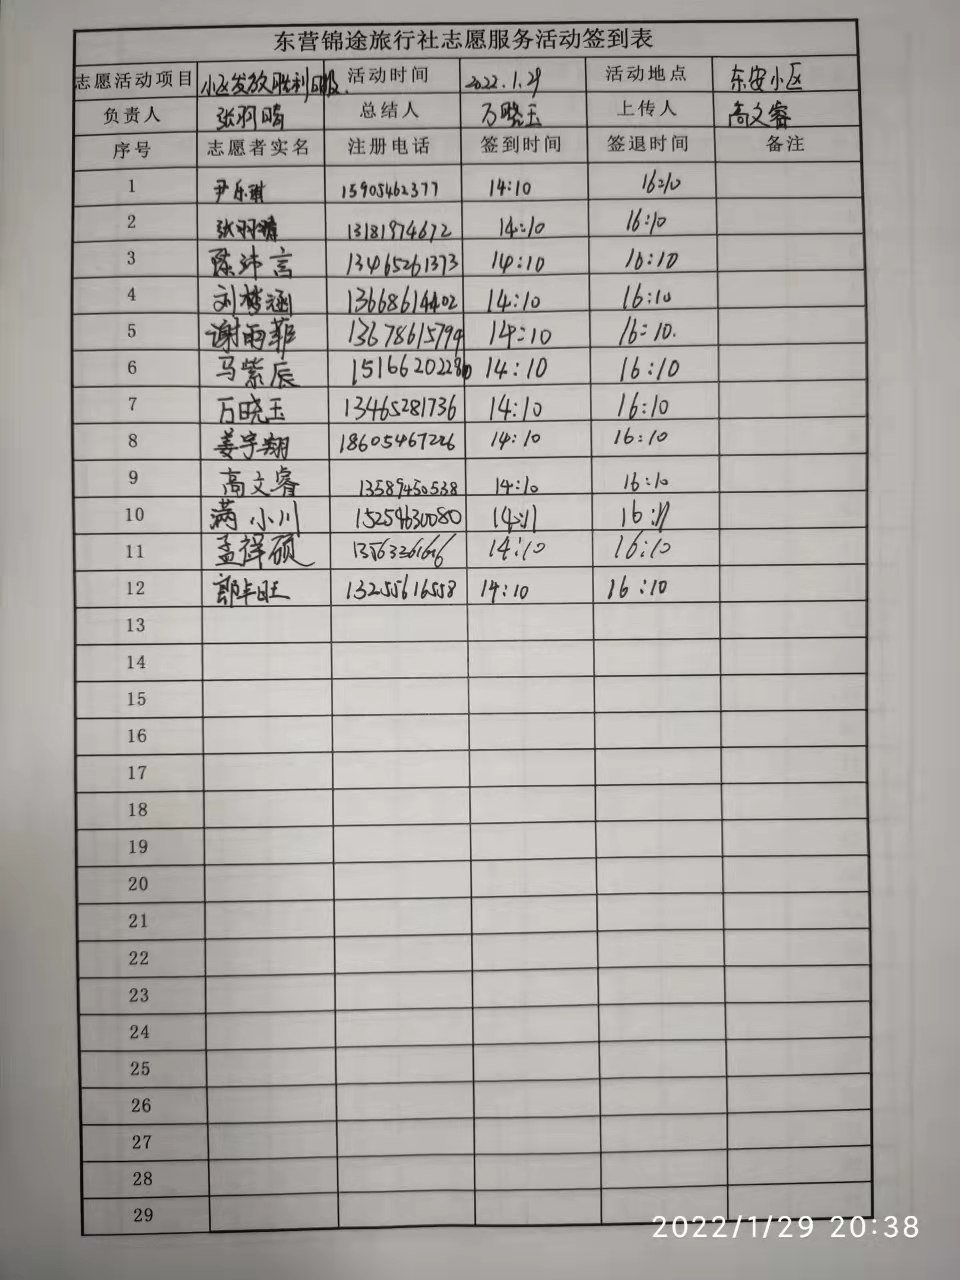 东营锦途旅行社志愿服务活动签到表
志愿活动项目 小区发放胜利日报 活动时间 2022.1.29 活动地点 东安小区
负责人 张羽晴 总结人 万晓玉 上传人 高文睿
序号 志愿者实名 注册电话 签到时间 签退时间 备注
1 尹乐琪 15905462377 14:10 16:10
2 张羽晴 13181974672 14:10 16:10
3 陈沛言 13465261373 14:10 16:10
4 刘梦涵 13668614402 14:10 16:10
5 谢雨菲 13678615794 14:10 16:10.
6 马紫辰 15166202280 14:10 16:10
7 万晓玉 13465281736 14:10 16:10
8 姜宇翔 18605467226 14:10 16:10
9 高文睿 13589450538 14:10 16:10
10 满小川 15254630080 14:11 16:11
11 孟祥硕 14:10 16:10
12 郭丰旺 13255616558 14:10 16:10
13
14
15
16
17
18
19
20
21
22
23
24
25
26
27
28
29
2022/1/29 20:38